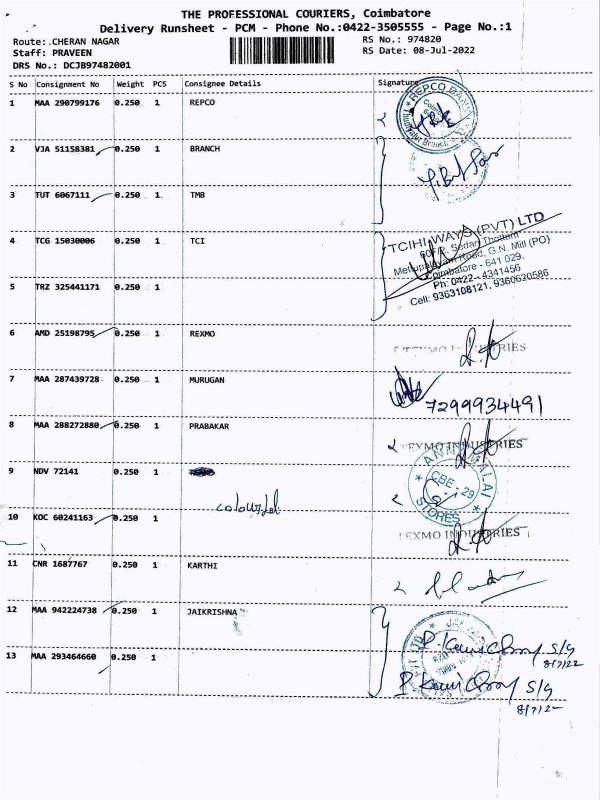 THE PROFESSIONAL COURIERS, Coimbatore
Delivery Runsheet - PCM - Phone No.:0422-3505555 - Page No.:1
Route: .CHERAN NAGAR
RS No.: 974820
Staff: PRAVEEN
RS Date: 08-Jul-2022
DRS No.: DCJB97482001
S No Consignment No Weight PCS Consignee Details Signature
1 MAA 290799176 0.250 1 REPCO
REPCO BANK
2 VJA 51158381 0.250 1 BRANCH
3 TUT 6067111 0.250 1 TMB
4 TCG 15030006 0.250 1 TCI
TCIHI WAYS (PVT) LTD
G.N. Mill (PO)
Coimbatore - 641 029.
Ph: 0422 - 4341456
Cell: 9363108121, 9360620586
5 TRZ 325441171 0.250 1
6 AMD 25198795 0.250 1 REXMO
7 MAA 287439728 0.250 1 MURUGAN
7299934491
8 MAA 288272880 0.250 1 PRABAKAR
TEXMO INDUSTRIES
9 NDV 72141 0.250 1
ANNAMALAI
CBE - 29
STORES
10 KOC 60241163 0.250 1
TEXMO INDUSTRIES
11 CNR 1687767 0.250 1 KARTHI
12 MAA 942224738 0.250 1 JAIKRISHNA
S/G
8/7/22
13 MAA 293464660 0.250 1
S/G